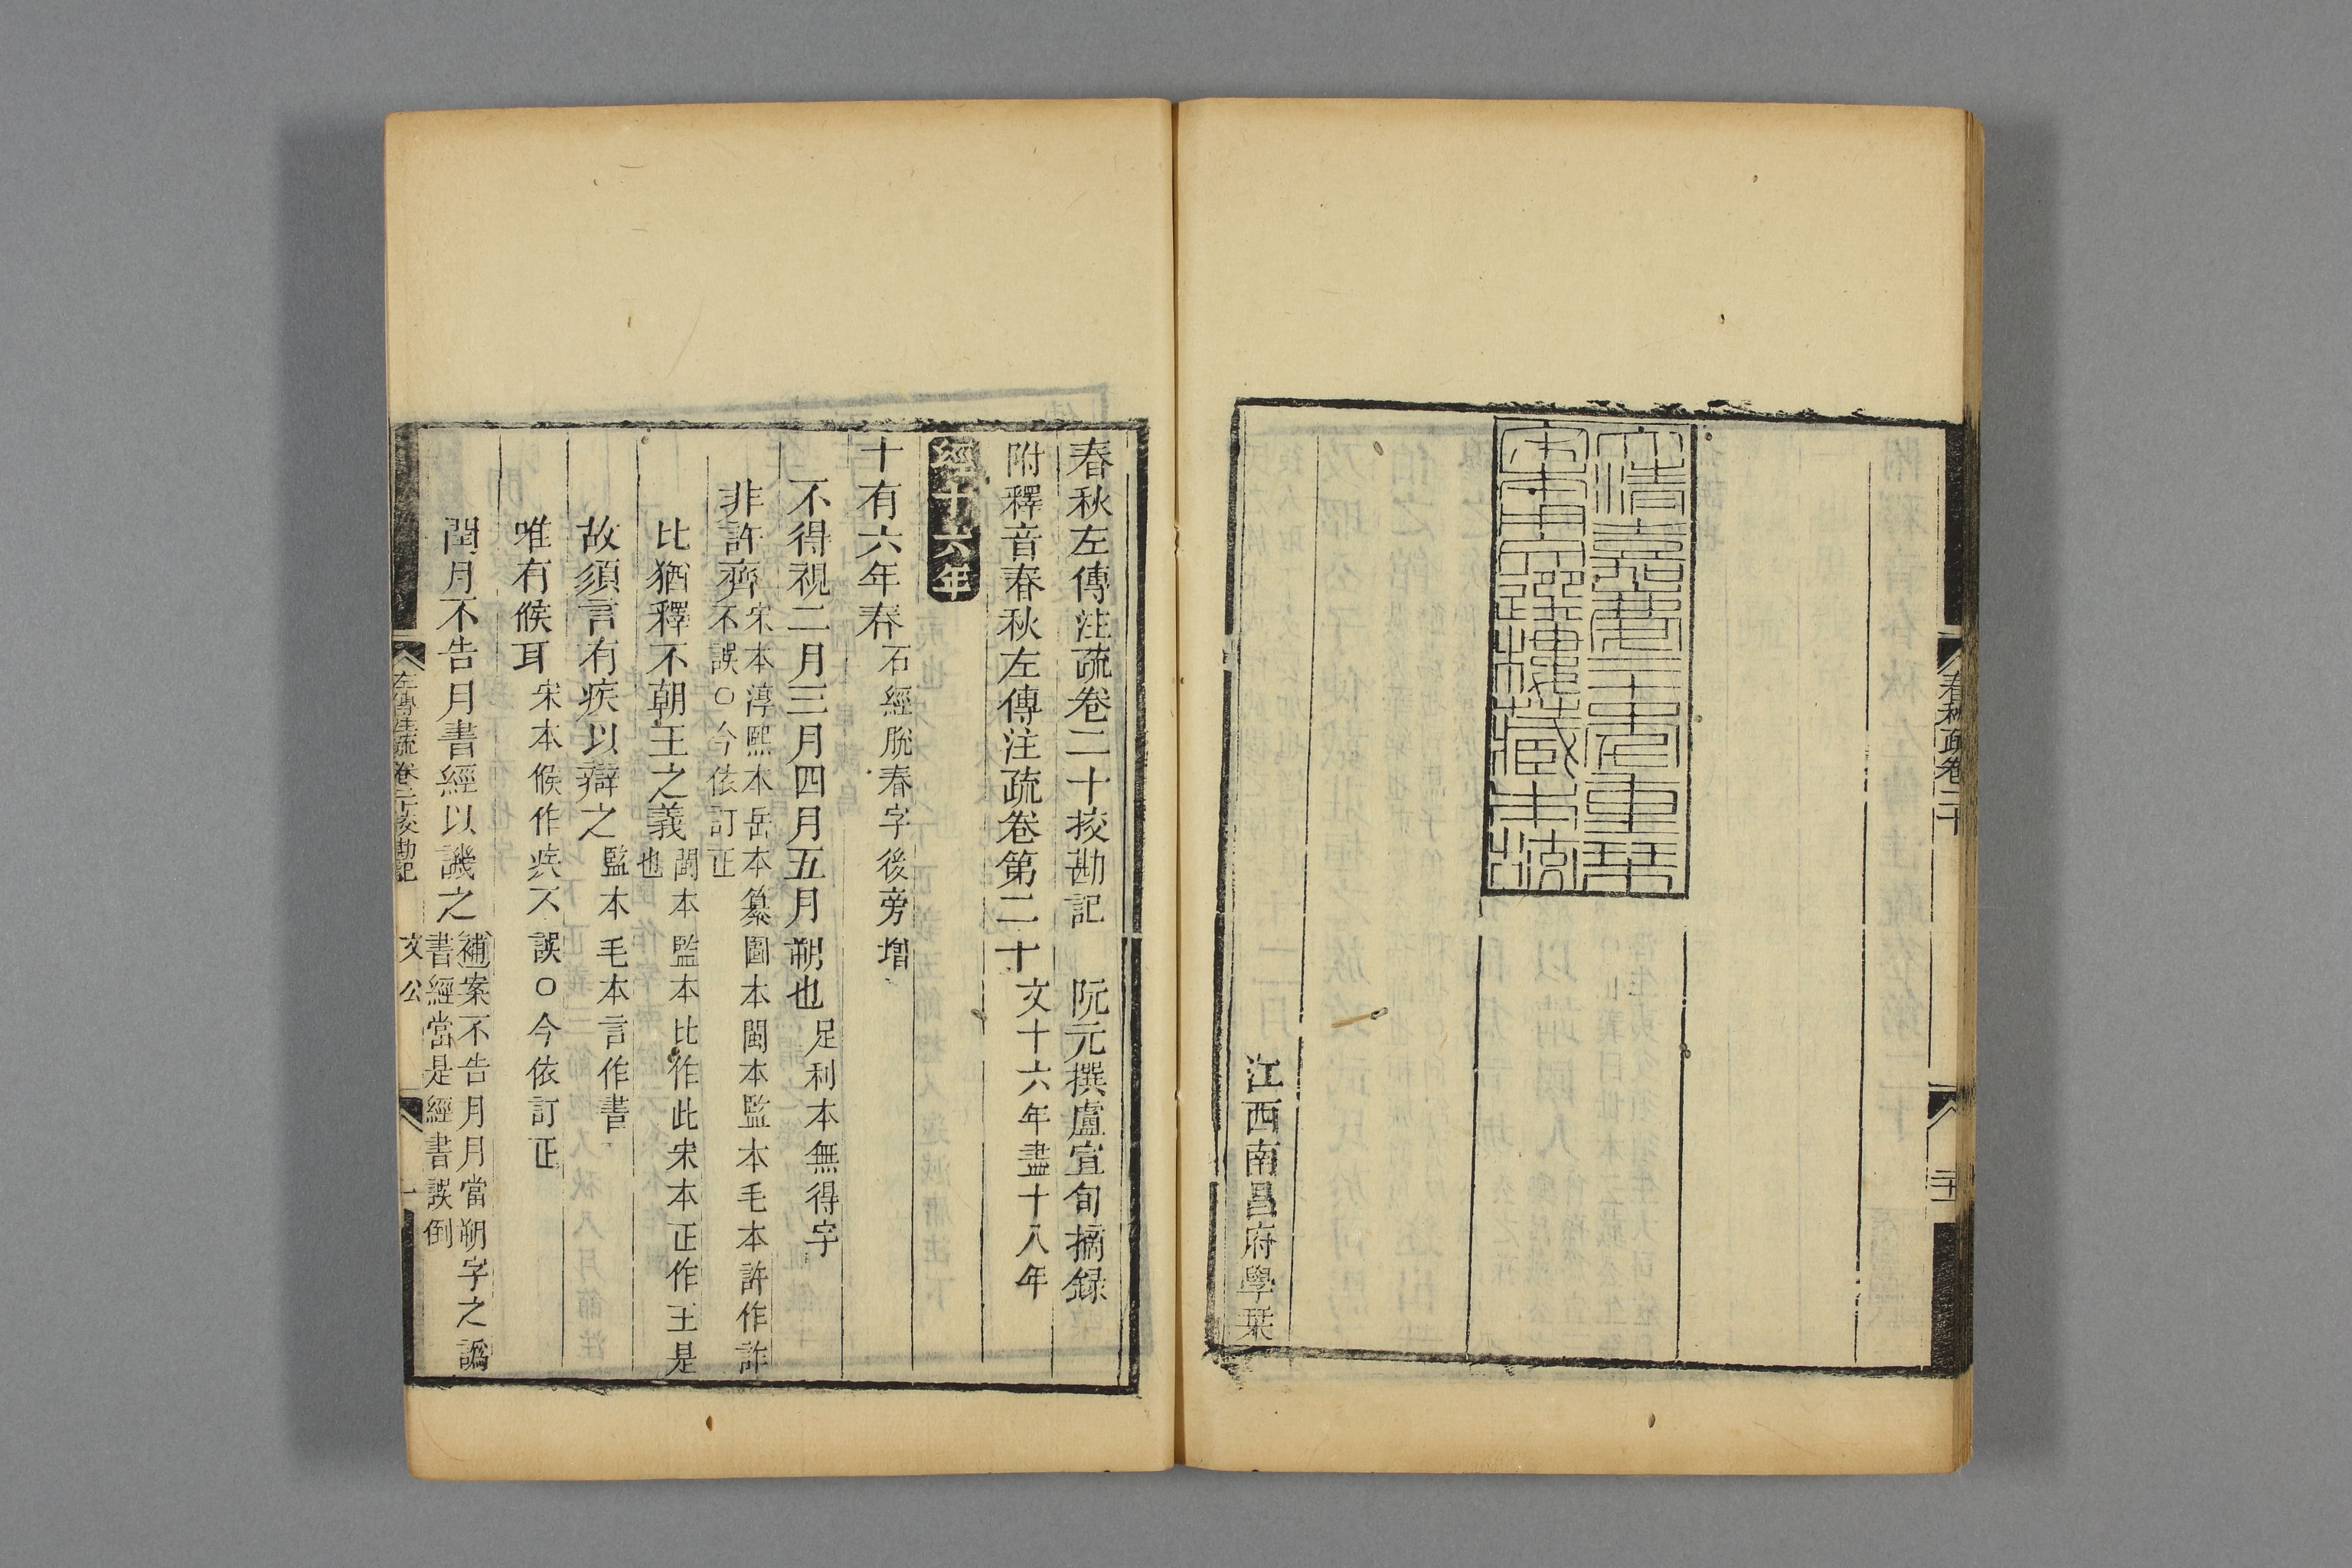 春秋疏卷二十
大清嘉慶二十年重栞
宋本用文選樓藏本校
江西南昌府學栞
春秋左傳注疏卷二十挍勘記 阮元撰盧宣旬摘録
附釋音春秋左傳注疏卷第二十 文十六年盡十八年
經十六年
十有六年春 石經脱春字後旁增
不得視二月三月四月五月朔也 足利本無得字
非許齊 宋本淳熙本岳本纂圖本閩本監本毛本許作詐
不誤○今依訂正
比猶釋不朝王之義 閩本監本比作此宋本正作王是
也
故須言有疾以辯之 監本毛本言作書
唯有候耳 宋本候作疾不誤○今依訂正
閏月不告月書經以譏之 補案不告月月當朔字之譌
書經當是經書誤倒
左傳注疏卷二十挍勘記 文公 一